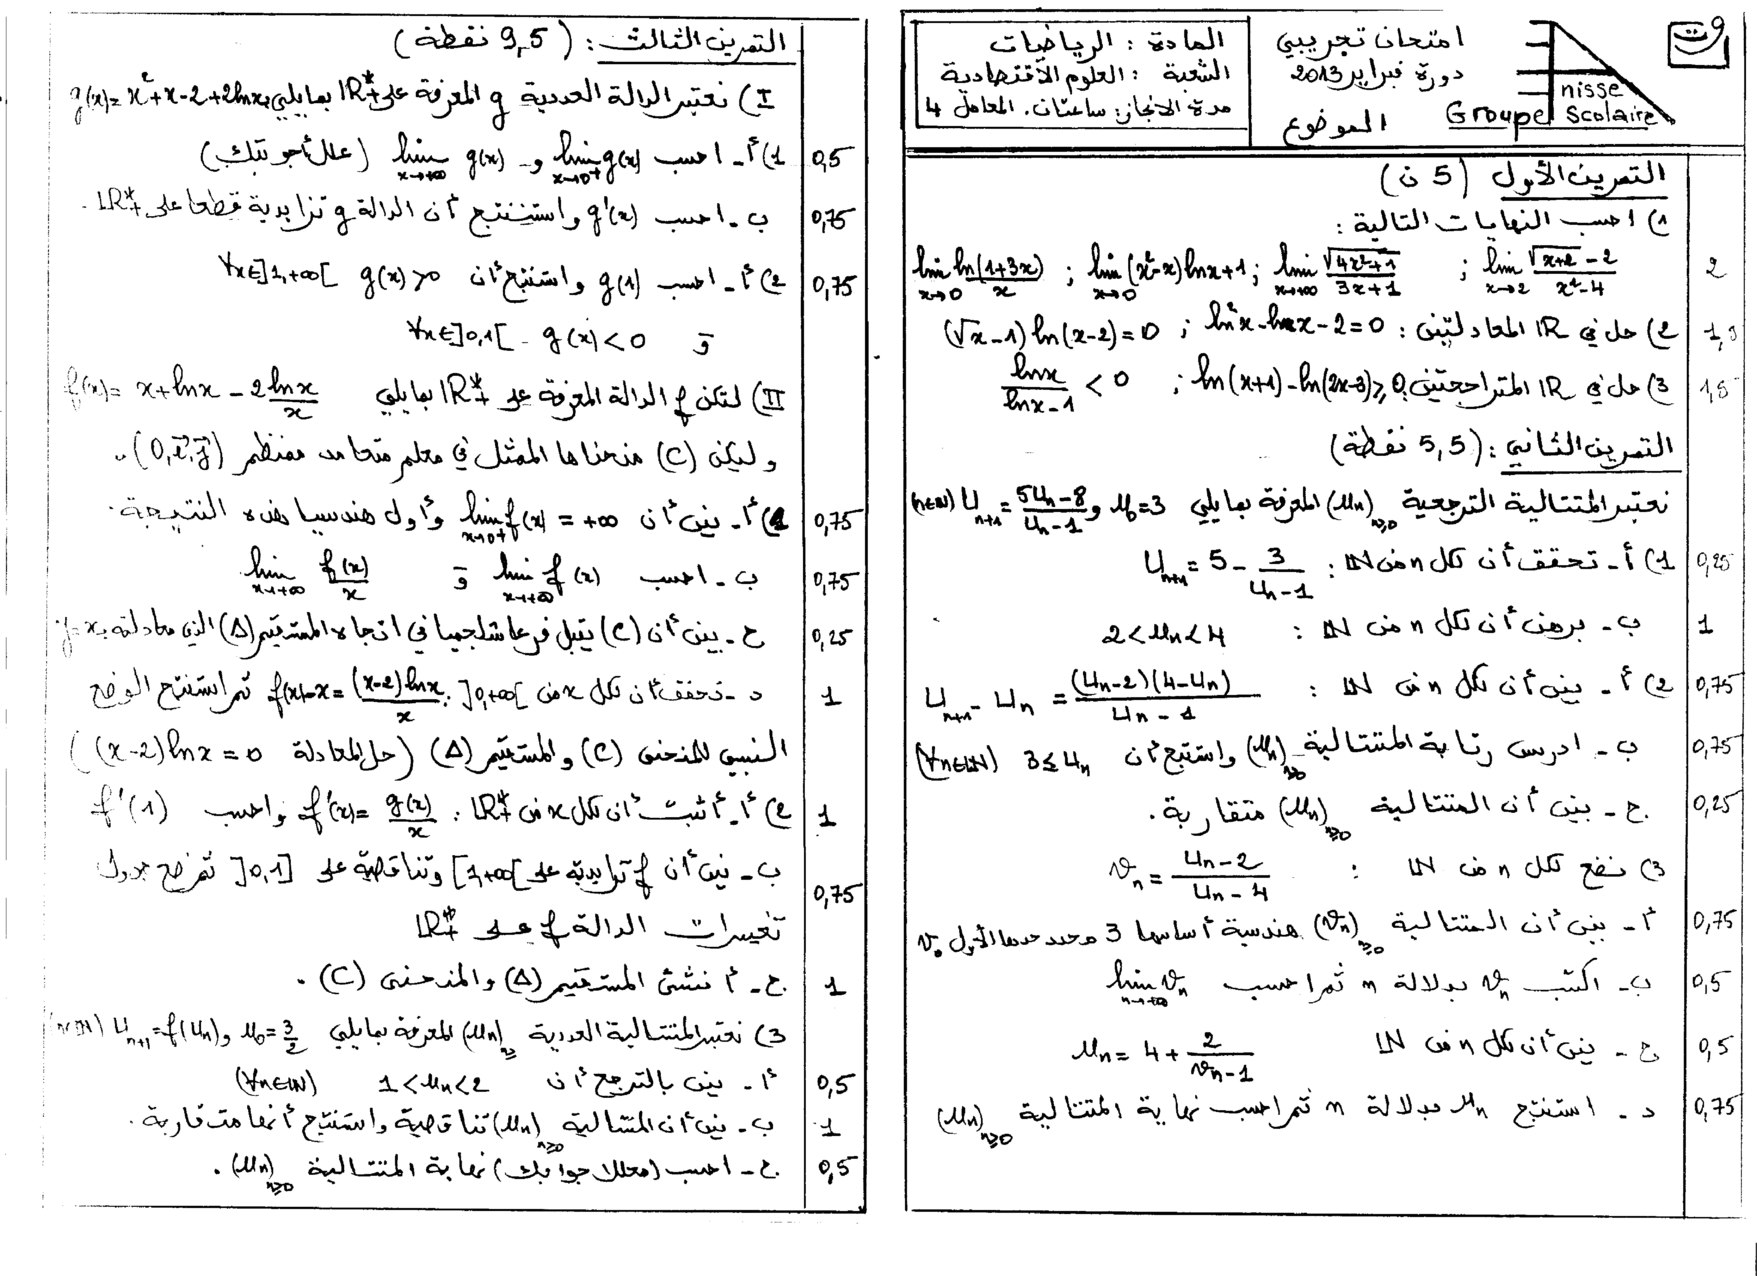 امتحان تجريبي
دورة فبراير 2013
الموضوع
nisse
Groupe Scolaire
المادة : الرياضيات
الشعبة : العلوم الاقتصادية
مدة الانجاز: ساعتان. المعامل 4
التمرين الأول (5 ن)
1) احسب النهايات التالية :
2 lim_{x→2} (√(x+2) - 2)/(x²-4) ; lim_{x→+∞} √(4x²+1)/(3x+1) ; lim_{x→0} (x²-x)lnx+1 ; lim_{x→0} ln(1+3x)/x
2) حل في IR المعادلتين : ln²x - lnx - 2 = 0 ; (√x - 1) ln(x-2) = 0
1,5 3) حل في IR المتراجحتين ln(x+1) - ln(2x-3) ≥ 0 ; lnx/(lnx-1) < 0
التمرين الثاني : (5,5 نقطة)
نعتبر المتتالية الترجعية (u_n)_{n≥0} المعرفة بمايلي u_0=3 و U_{n+1} = (5u_n-8)/(u_n-1) (n∈IN)
0,25 1) أ- تحقق أن لكل n من IN : U_{n+1} = 5 - 3/(u_n-1)
1 ب- برهن أن لكل n من IN : 2 < u_n < 4
0,75 2) أ- بين أن لكل n من IN : U_{n+1} - U_n = (U_n-2)(4-U_n)/(U_n-1)
0,75 ب- ادرس رتابة المتتالية (u_n)_{n≥0} واستنتج أن 3 ≤ u_n (∀n∈IN)
0,25 ج- بين أن المتتالية (u_n)_{n≥0} متقاربة.
3) نضع لكل n من IN : v_n = (u_n-2)/(u_n-4)
0,75 أ- بين أن المتتالية (v_n)_{n≥0} هندسية أساسها 3 محدد حدها الأول v_0
0,5 ب- اكتب v_n بدلالة n ثم احسب lim_{n→+∞} v_n
0,5 ج- بين أن لكل n من IN u_n = 4 + 2/(v_n-1)
0,75 د- استنتج u_n بدلالة n ثم احسب نهاية المتتالية (u_n)_{n≥0}
التمرين الثالث : (9,5 نقطة)
I) نعتبر الدالة العددية g المعرفة على IR*+ بمايلي g(x) = x²+x-2+2lnx
0,5 1) أ- احسب lim_{x→0+} g(x) و lim_{x→+∞} g(x) (علل أجوبتك)
0,75 ب- احسب g'(x) واستنتج أن الدالة g تزايدية قطعا على IR*+.
0,75 2) أ- احسب g(1) واستنتج أن g(x) > 0 ∀x∈]1,+∞[
و g(x) < 0 ∀x∈]0,1[
II) لتكن f الدالة المعرفة على IR*+ بمايلي f(x) = x + lnx - 2 lnx/x
وليكن (C) منحناها الممثل في معلم متعامد ممنظم (O,i,j)
0,75 1) أ- بين أن lim_{x→0+} f(x) = +∞ وأول هندسيا هذه النتيجة.
0,75 ب- احسب lim_{x→+∞} f(x) و lim_{x→+∞} f(x)/x
0,25 ج- بين أن (C) يقبل فرعا شلجميا في اتجاه المستقيم (Δ) الذي معادلته y=x
1 د- تحقق أن لكل x من ]0,+∞[ f(x)-x = (x-2)lnx/x ثم استنتج الوضع
النسبي للمنحنى (C) والمستقيم (Δ) (حل المعادلة (x-2)lnx = 0)
1 2) أ- أثبت أن لكل x من IR*+ : f'(x) = g(x)/x واحسب f'(1)
0,75 ب- بين أن f تزايدية على [1,+∞[ وتناقصية على ]0,1] ثم ضع جدول
تغيرات الدالة f على IR*+
1 ج- أنشئ المستقيم (Δ) والمنحنى (C).
3) نعتبر المتتالية العددية (u_n)_{n≥} المعرفة بمايلي u_0 = 3/2 و U_{n+1} = f(u_n) (n∈IN)
0,5 أ- بين بالترجع أن 1 < u_n < 2 (∀n∈IN)
1 ب- بين أن المتتالية (u_n)_{n≥0} تناقصية واستنتج أنها متقاربة.
0,5 ج- احسب (معللا جوابك) نهاية المتتالية (u_n)_{n≥0}.